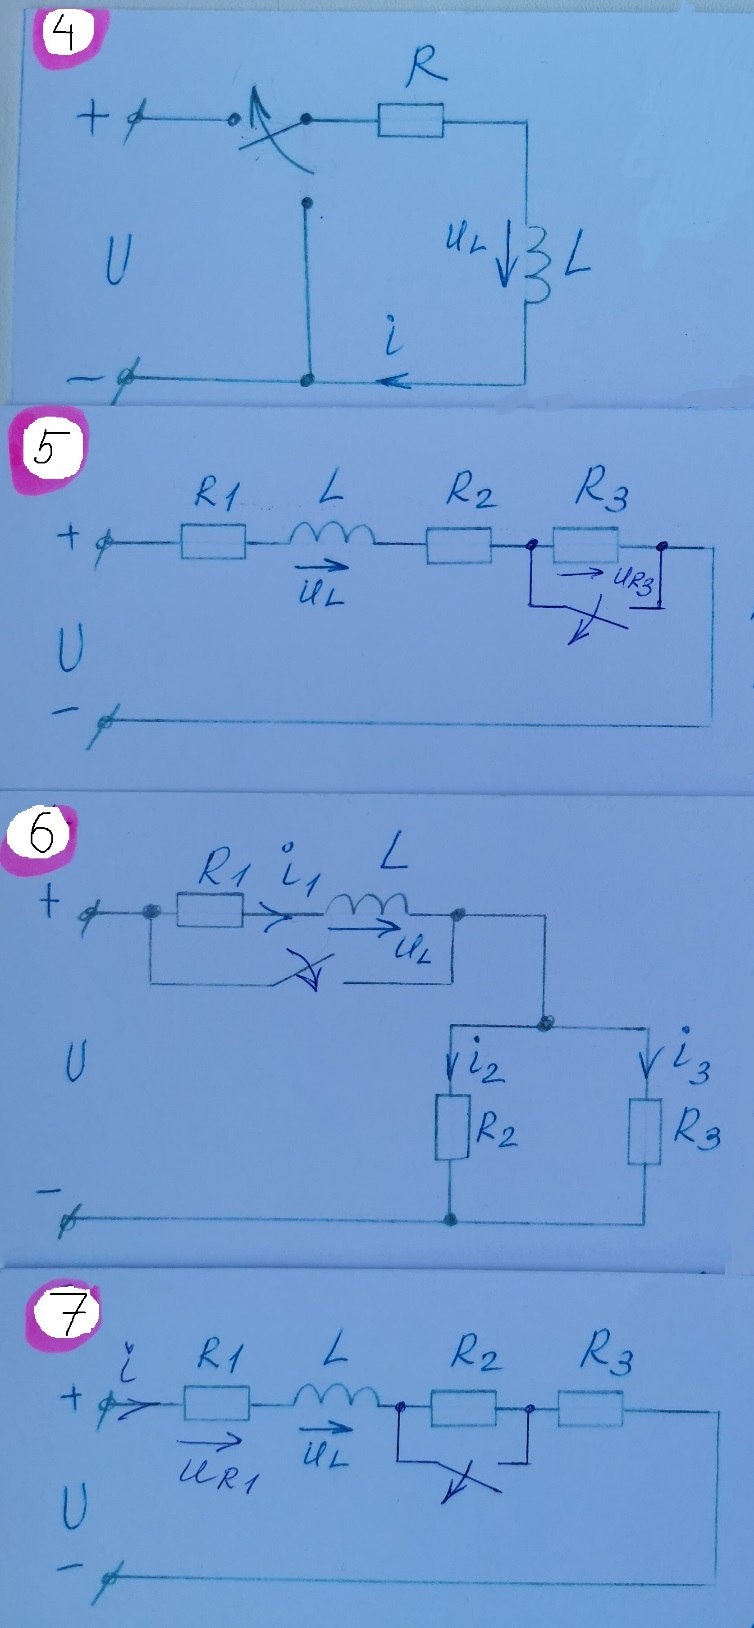 4
R
+
U
u_L
L
i
−
5
R1 L R2 R3
+
u_L
u_R3
U
−
6
R1 i1 L
+
u_L
U
i2 i3
R2 R3
−
7
i R1 L R2 R3
+
u_R1 u_L
U
−